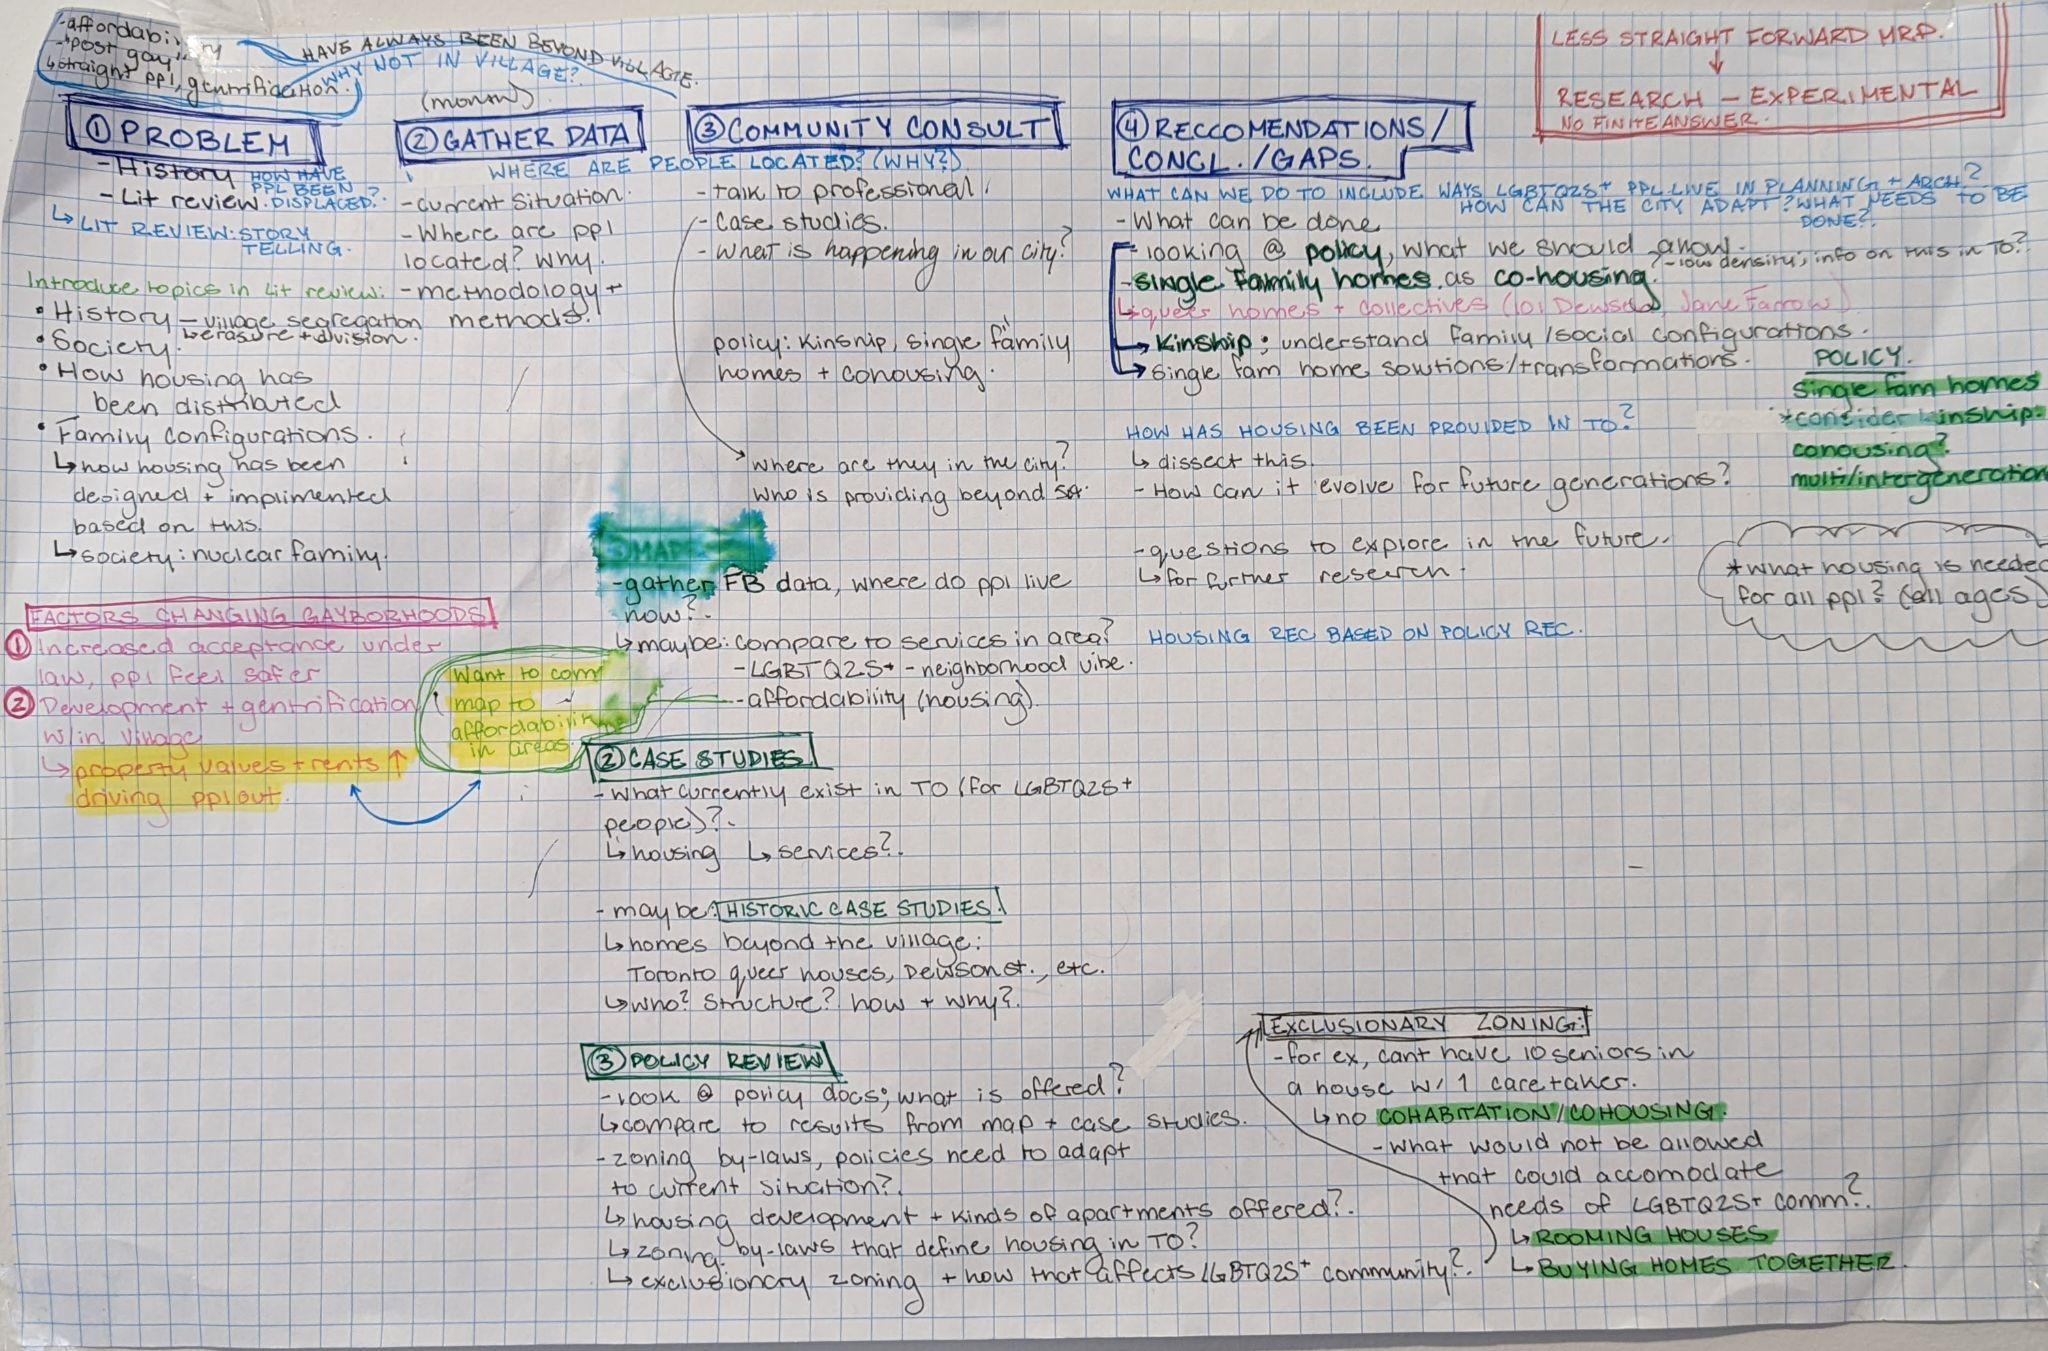 -affordability
-"post gay"
↳straight ppl, gentrification.
HAVE ALWAYS BEEN BEYOND VILLAGE.
WHY NOT IN VILLAGE?
LESS STRAIGHT FORWARD MRP.
↓
RESEARCH - EXPERIMENTAL
NO FINITE ANSWER.
① PROBLEM
- History HOW HAVE
PPL BEEN
DISPLACED?
- Lit review.
↳ LIT REVIEW: STORY
TELLING.
Introduce topics in lit review:
• History - village segregation
↳erasure + division.
• Society.
• How housing has
been distributed
• Family configurations.
↳how housing has been
designed + implimented
based on this.
↳society: nuclear family.
FACTORS CHANGING GAYBORHOODS
① Increased acceptance under
law, ppl feel safer
② Development + gentrification
w/in village
↳property values + rents ↑
driving ppl out.
② GATHER DATA
WHERE ARE PEOPLE LOCATED? (WHY?)
-current situation.
-Where are ppl
located? why.
-methodology +
methods.
③ COMMUNITY CONSULT
-talk to professional
-Case studies.
-What is happening in our city?
policy: kinship, single family
homes + cohousing.
where are they in the city?
who is providing beyond
① MAP
-gather FB data, where do ppl live
now?
↳maybe: compare to services in area?
-LGBTQ2S+ -neighborhood vibe.
-affordability (housing).
Want to
map to
affordability
in areas.
② CASE STUDIES
-What currently exist in TO (for LGBTQ2S+
people)?
↳housing ↳services?
-maybe: HISTORIC CASE STUDIES.
↳homes beyond the village:
Toronto queer houses, Dewson st., etc.
↳who? structure? how + why?
③ POLICY REVIEW
-look @ policy docs; what is offered?
↳compare to results from map + case studies.
-zoning by-laws, policies need to adapt
to current situation?
↳housing development + kinds of apartments offered?
↳zoning by-laws that define housing in TO?
↳exclusionary zoning + how that affects LGBTQ2S+ community?
④ RECCOMENDATIONS/
CONCL./GAPS.
WHAT CAN WE DO TO INCLUDE WAYS LGBTQ2S+ PPL LIVE IN PLANNING + ARCH?
HOW CAN THE CITY ADAPT? WHAT NEEDS TO BE
DONE?
-What can be done
-looking @ policy, what we should allow.
-low density; info on this in TO?
-single family homes as co-housing.
↳queer homes + collectives (101 Dewson, Jane Farrow)
→kinship: understand family/social configurations.
→single fam home solutions/transformations.
POLICY.
single fam homes
*consider kinship.
cohousing?
multi/intergeneration
HOW HAS HOUSING BEEN PROVIDED IN TO?
↳ dissect this.
-How can it evolve for future generations?
-questions to explore in the future.
↳for further research.
*what housing is needed
for all ppl? (all ages)
HOUSING REC BASED ON POLICY REC.
EXCLUSIONARY ZONING:
-for ex, cant have 10 seniors in
a house w/ 1 caretaker.
↳no COHABITATION/COHOUSING.
-what would not be allowed
that could accomodate
needs of LGBTQ2S+ comm?
↳ROOMING HOUSES
↳BUYING HOMES TOGETHER.